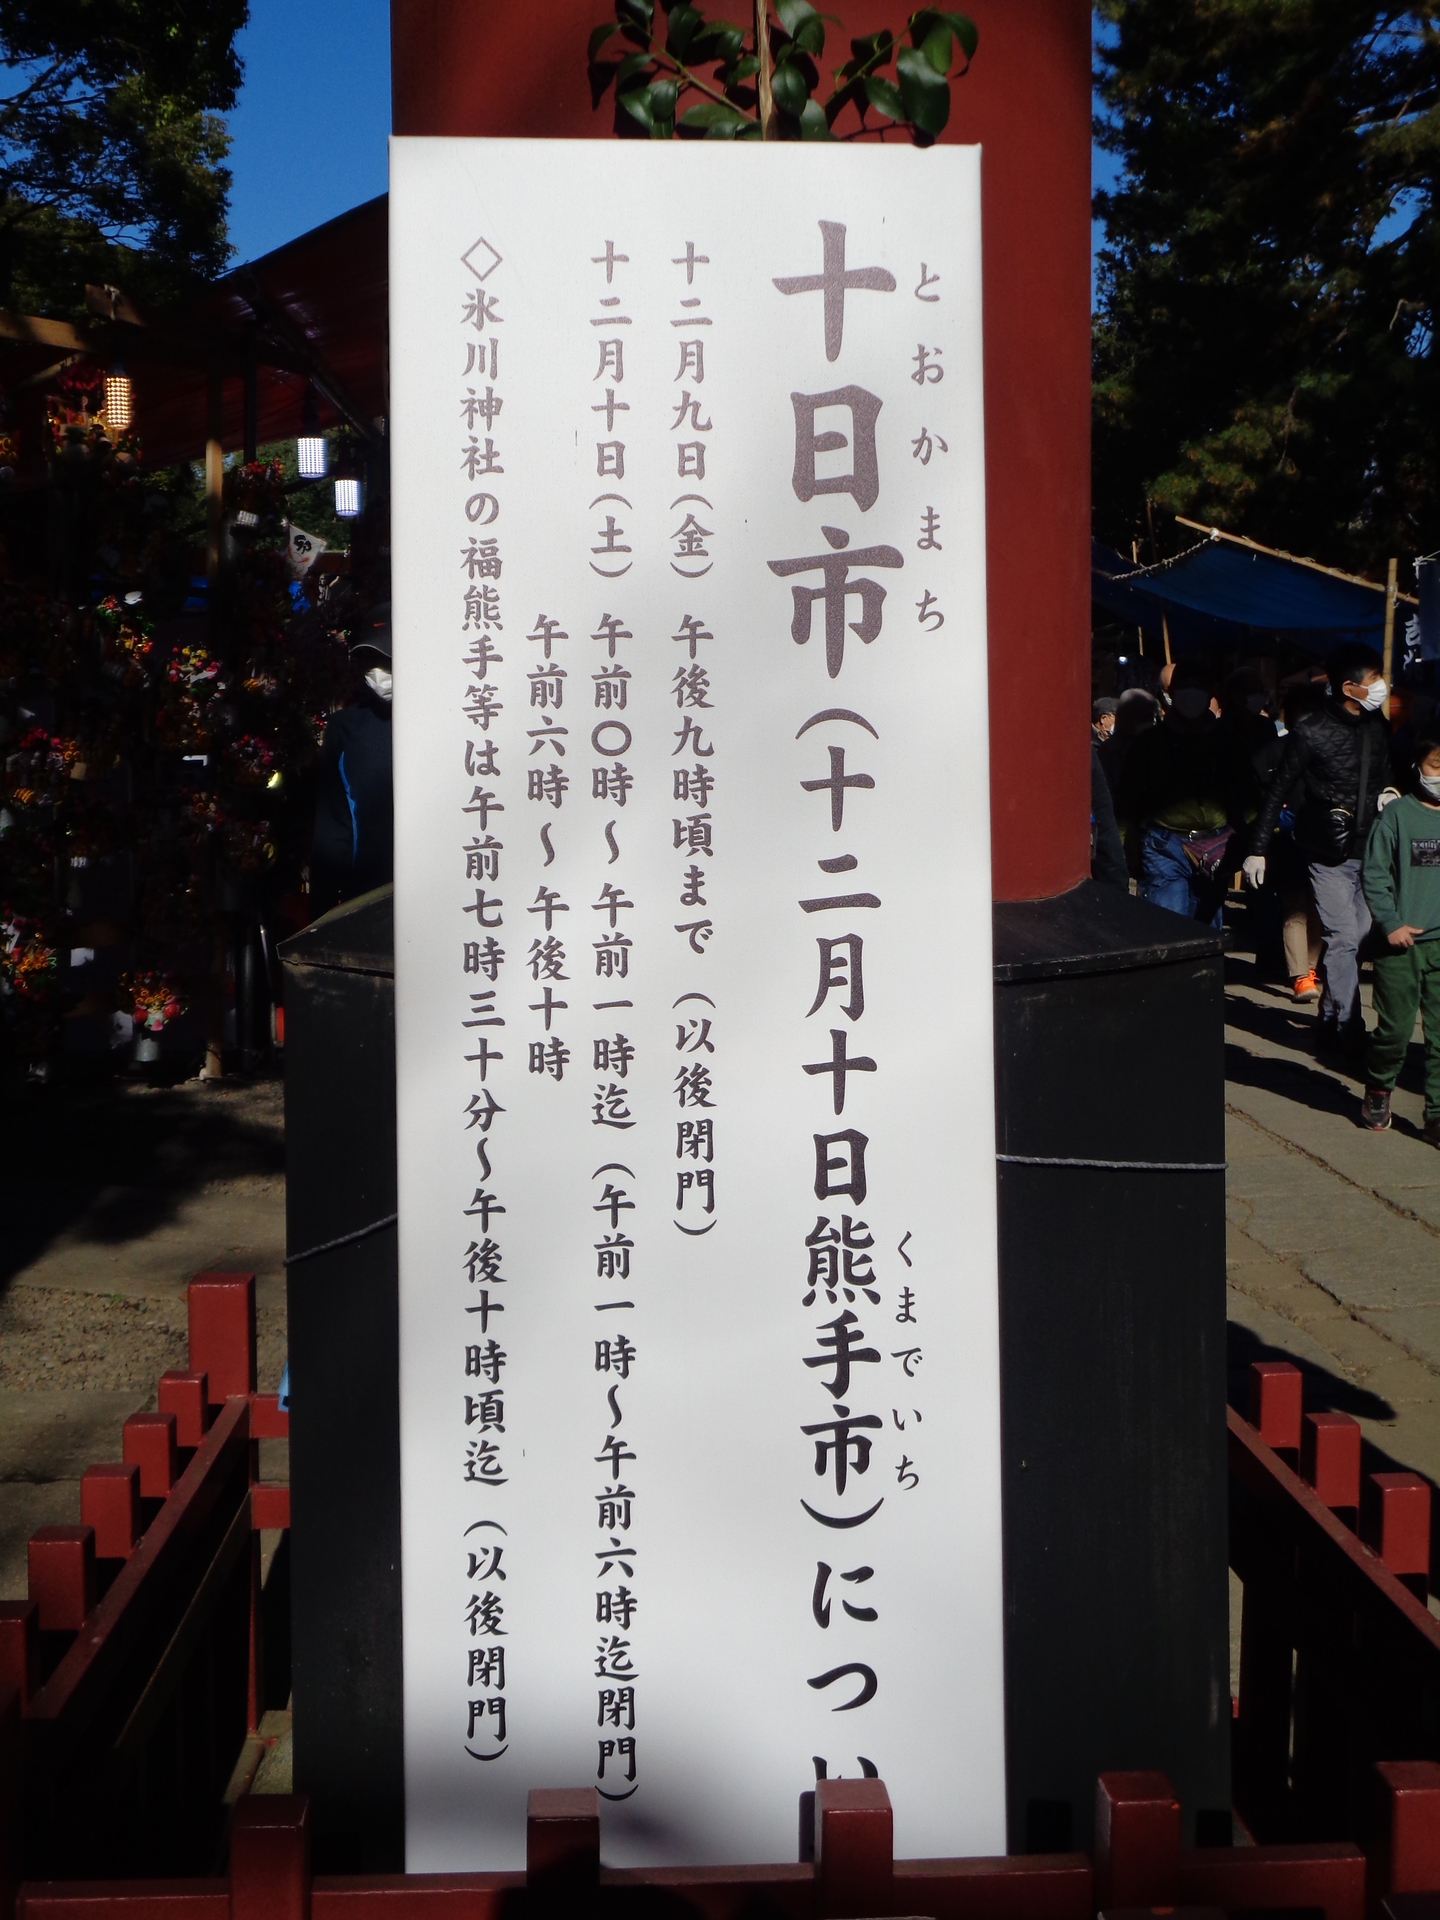 十日市（十二月十日熊手市）につい
とおかまち
くまでいち
十二月九日（金）　午後九時頃まで　（以後閉門）
十二月十日（土）　午前〇時～午前一時迄　（午前一時～午前六時迄閉門）
午前六時～午後十時
◇氷川神社の福熊手等は午前七時三十分～午後十時頃迄　（以後閉門）